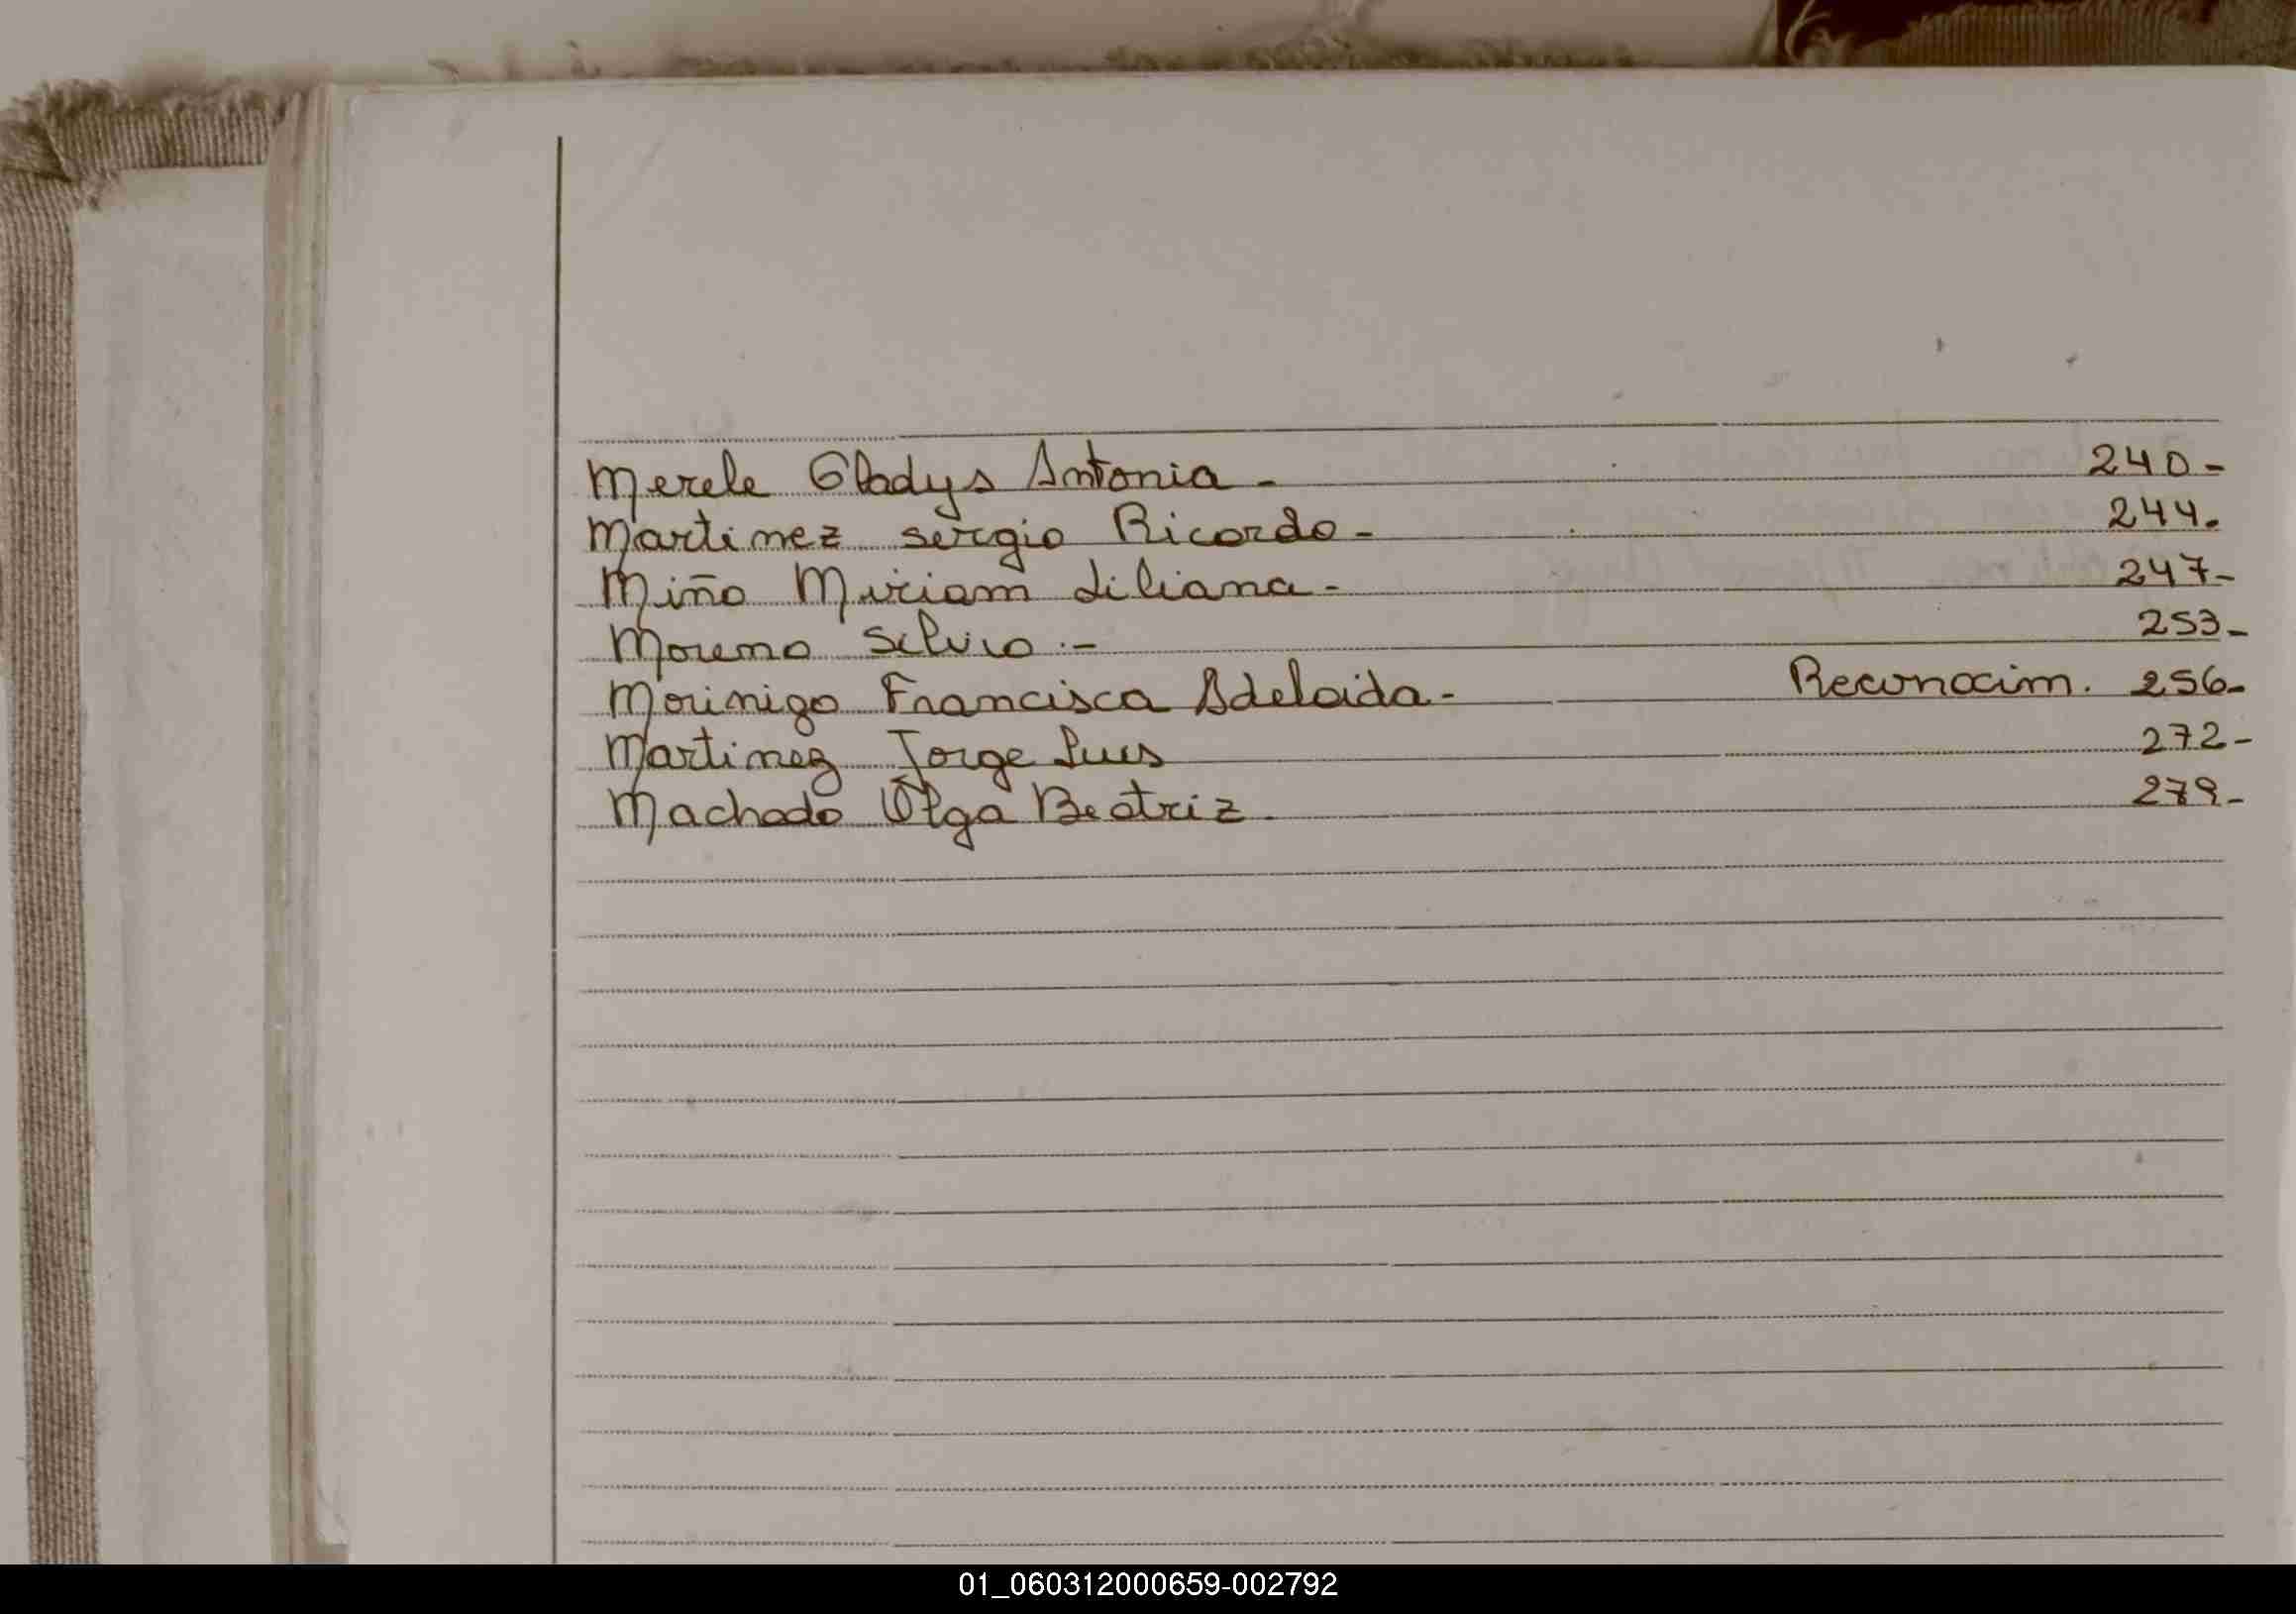 Merele Gladys Antonia - 240-
Martinez Sergio Ricardo - 244.
Miño Miriam Liliana - 247-
Moreno Silvio .- 253-
Morinigo Francisca Adelaida - Reconocim. 256-
Martinez Jorge Luis 272-
Machado Olga Beatriz . 279-
01_060312000659-002792